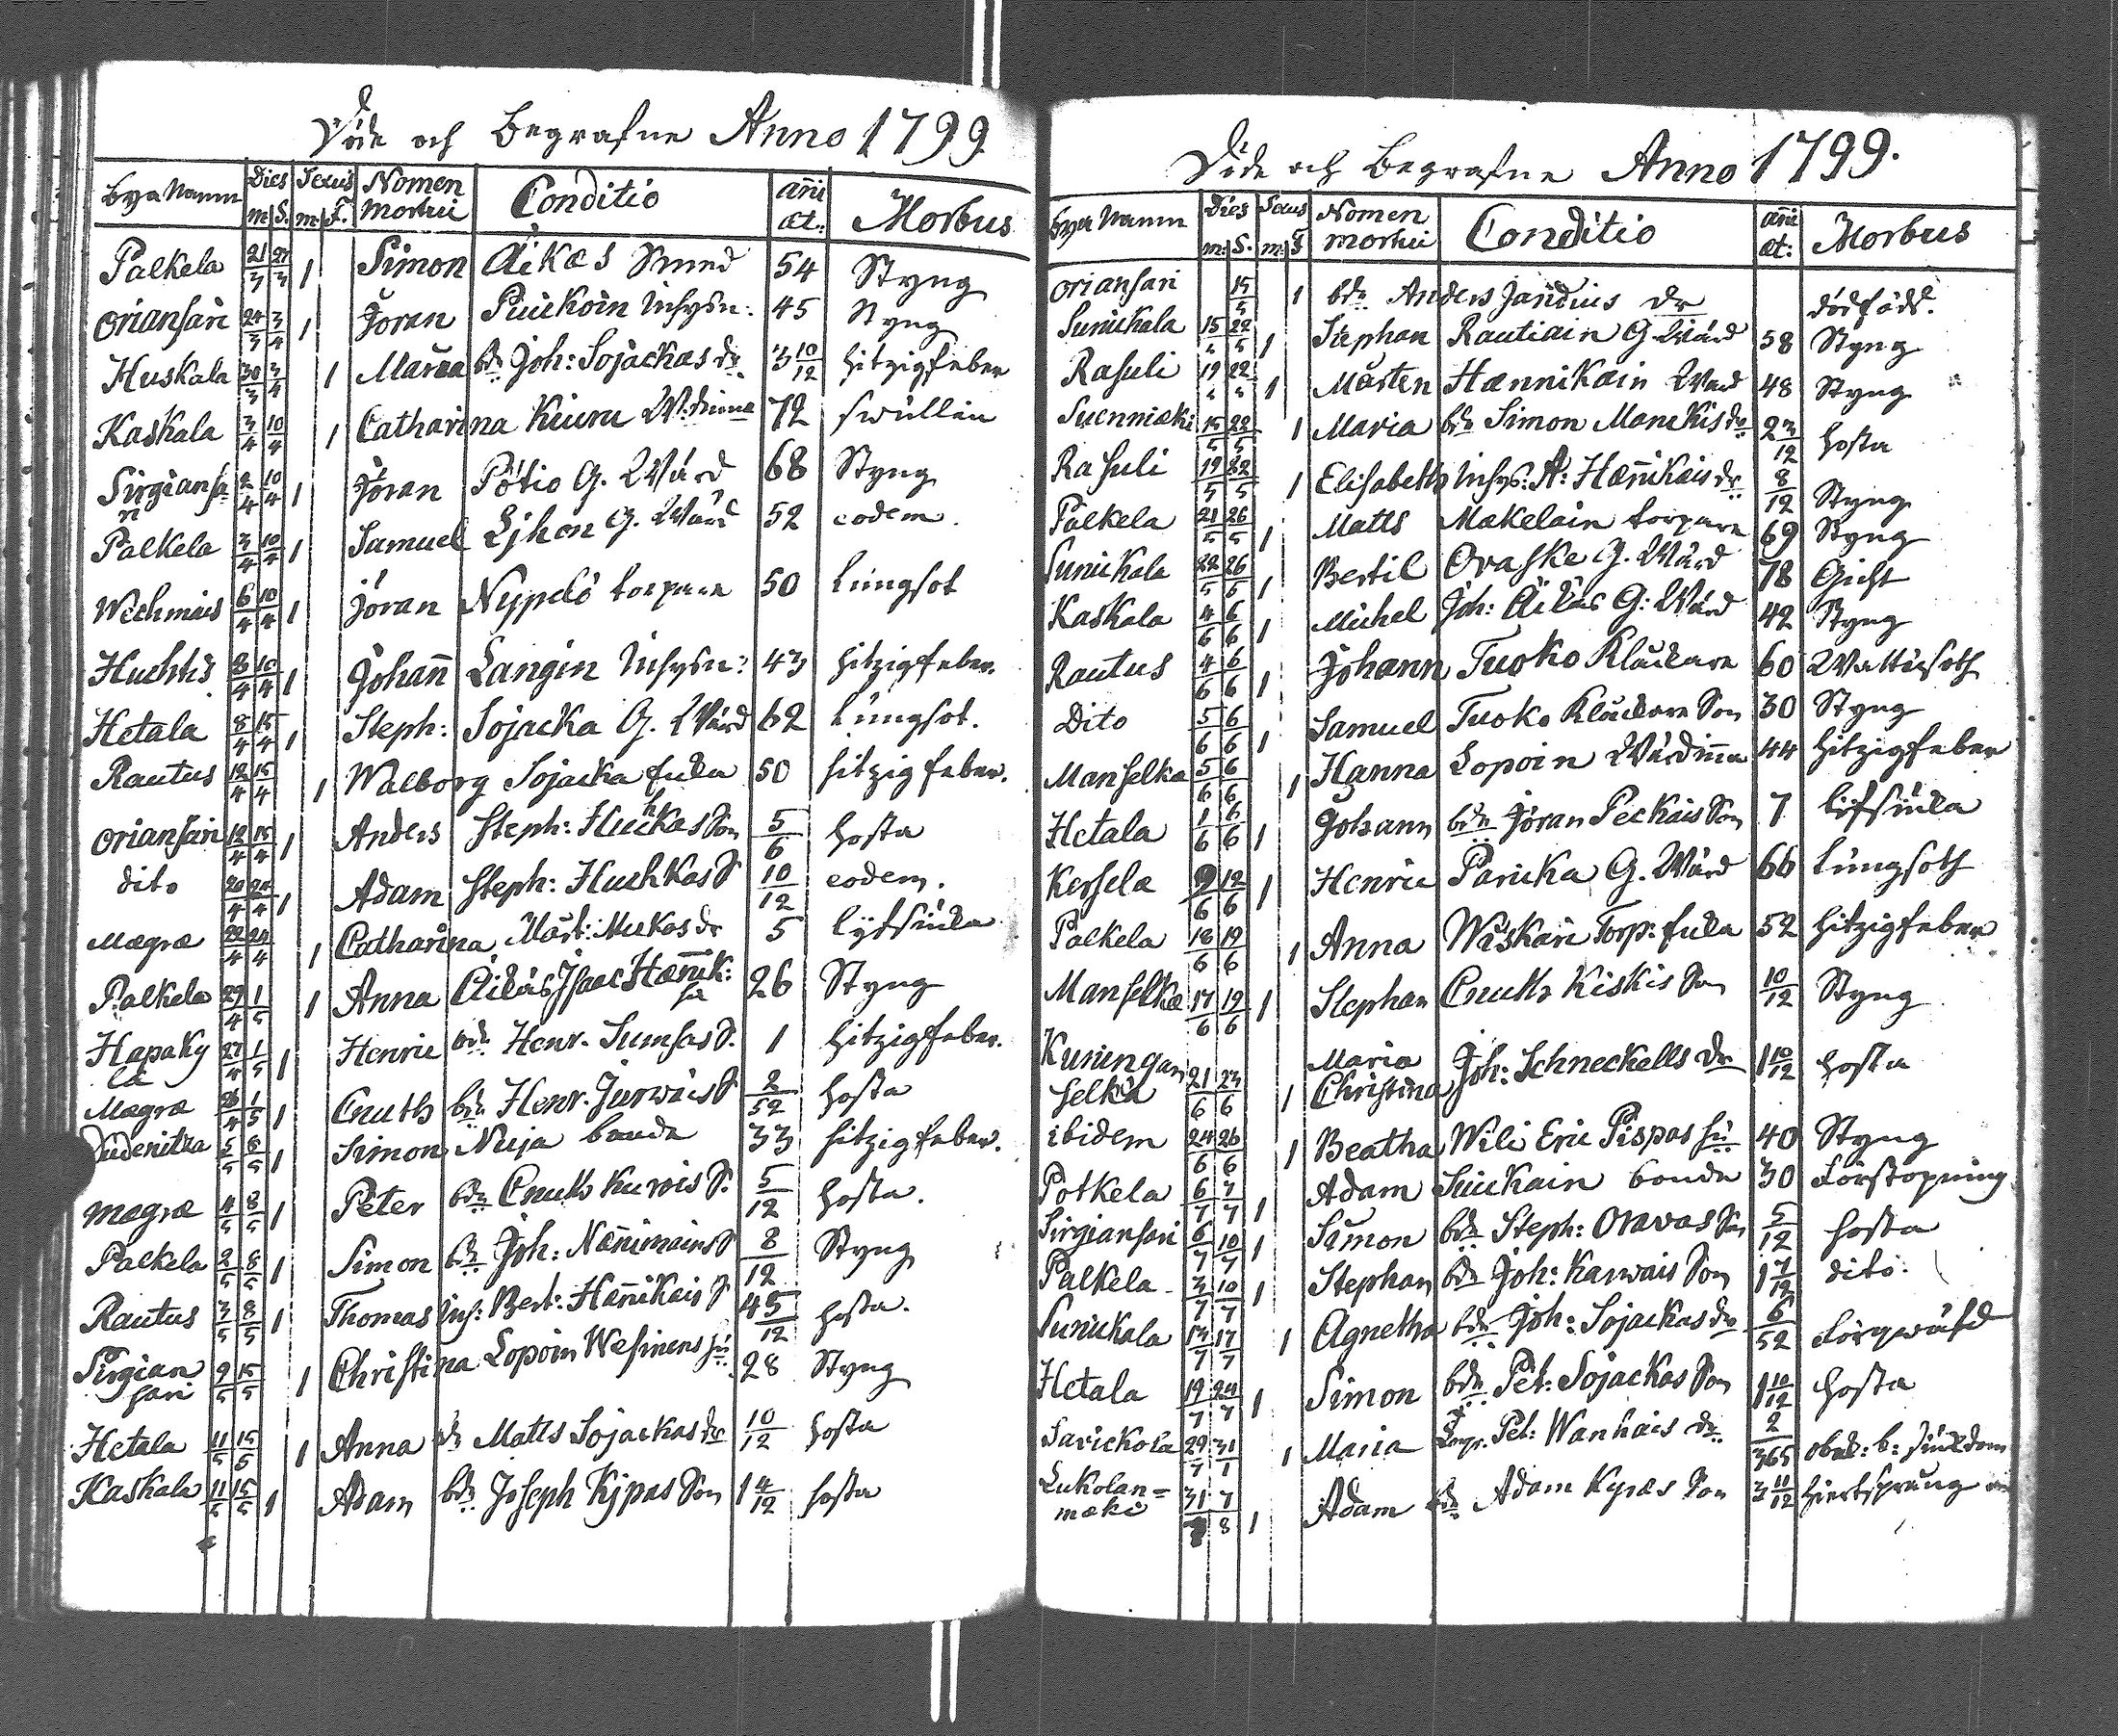 Döde och Begrafne Anno 1799
Bya Namn Dies m S. Sexus m. F. Nomen mortui Conditio añi æt: Morbus
Palkela 21/3 27/3 1 Simon Äikæs 54 Styng
Oriansari 24/3 3/4 1 Jöran Puckoin Inhysn: 45 Styng
Huskala 30/3 3/4 1 Maria bd Joh: Sojackas dr 3 10/12 hitzigfeber
Kaskala 3/4 10/4 1 Catharina Kiuru Wärdinna 72 swullen
Sirgiansari 2/4 10/4 1 Jöran Pötio G. Wärd 68 Styng
Palkela 3/4 10/4 1 Samuel Ijhon G. Wärd 52 eodem.
Wechmais 6/4 10/4 1 Jöran Nypelö torpare 50 Lungsot
Huchtis 10/4 1 Johañ Langin Inhysn: 43 hitzigfeber.
Hetala 8/4 15/4 1 Steph: Sojacka G. Wärd 62 Lungsot.
Rautus 12/4 15/4 1 Walborg Sojacka Enka 50 hitzigfeber.
Oriansari 12/4 15/4 1 Anders Steph: Huchkas Son 5/6 hosta
dito 20/4 24/4 1 Adam Steph: Huchkas S 10/12 eodem.
Mægræ 22/4 24/4 1 Catharina Mårt: Muckas dr 5 lijfsiuka
Palkela 29/4 1/5 1 Anna Äikäs Isaac Hæñik: hu 26 Styng
Hapakylä 27/4 1/5 1 Henric bd Henr. Sumsas S. 1 hitzigfeber.
Mægræ 26/4 1/5 1 Cnuth bd Henr. Jurwäis S 2/52 hosta
Dudenitza 5/5 8/5 1 Simon Nuija bonde 33 hitzigfeber.
Mægræ 4/5 8/5 1 Peter bd Cnuth Kurwis S. 5/12 hosta.
Palkela 2/5 8/5 1 Simon bd Joh: Næñimains S 8/12 Styng
Rautus 3/5 8/5 1 Thomas Inh: Bert: Hæñikais S 4 5/12 hosta.
Sirgiansari 9/5 15/5 1 Christina Lopoin Wesinens hu 28 Styng
Hetala 11/5 15/5 1 Anna bd Matts Sojackas dr 10/12 hosta
Kaskala 11/5 15/5 1 Adam bd Joseph Kjpas Son 1 4/12 hosta
Döde och Begrafne Anno 1799.
Bya Namn Dies m. S. Sexus m. F Nomen mortui Conditio añi æt: Morbus
Oriansari 15/5 1 bdr Anders Janduis dr dödföd.
Sunickala 15/5 22/5 1 Stephan Rautiain G. Wärd 58 Styng
Rasuli 19/5 22/5 1 Mårten Hænnikain Wärd 48 Styng
Suenmæki 15/5 22/5 1 Maria bdr Simon Manckis dr 2 3/12 hosta
Rasuli 19/5 22/5 1 Elisabeth Inhys: A: Hæñikais dr 8/12 Styng
Palkela 21/5 26/5 1 Matts Makelain torpare 69 Styng
Sunickala 22/5 26/5 1 Bertil Ovaske G. Wärd 78 Gicht
Kaskala 4/6 6/6 1 Michel Joh: Äikäs G: Wärd 42 Styng
Rautus 4/6 6/6 1 Johann Tuoko Klåckare 60 Wattusoth
Dito 5/6 6/6 1 Samuel Tuoko Klåckare Son 30 Styng
Manselka 5/6 6/6 1 Hanna Lopoin Wärdiña 44 hitzigfeber
Hetala 1/6 6/6 1 Johann bdr Jöran Peckais Son 7 lifsiuka
Kersela 9/6 12/6 1 Henric Paricka G. Wärd 66 Lungsoth
Palkela 18/6 19/6 1 Anna Wäskäri Torp: Enka 52 hitzigfeber
Manselkæ 17/6 19/6 1 Stephan Cnuth Kiskis Son 10/12 Styng
Kuningan selkä 21/6 23/6 1 Maria Christina Joh: Schneckells dr 1 10/12 hosta
ibidem 24/6 26/6 1 Beatha Wili Eric Pispas hu 40 Styng
Potkela 6/7 7/7 1 Adam Suickain bonde 30 Förstopning
Sirgiansari 6/7 10/7 1 Simon bdr Steph: Oravas Son 5/12 hosta
Palkela 3/7 10/7 1 Stephan bdr Joh: Karwais Son 1 7/12 dito.
Sunickala 17/7 1 Agnetha bdr Joh: Sojackas dr 6/52 Torgwäsd
Hetala 19/7 24/7 1 Simon bdr Pet: Sojackas Son 1 10/12 hosta
Savickola 29/7 31/1 1 Maria Pet: Wanhais dr 2/365 obek: b: siukdom
Lukolan=mæki 31/7 7/8 1 Adam bdr Adam Kypæs Son 3 11/12 hiertsprung